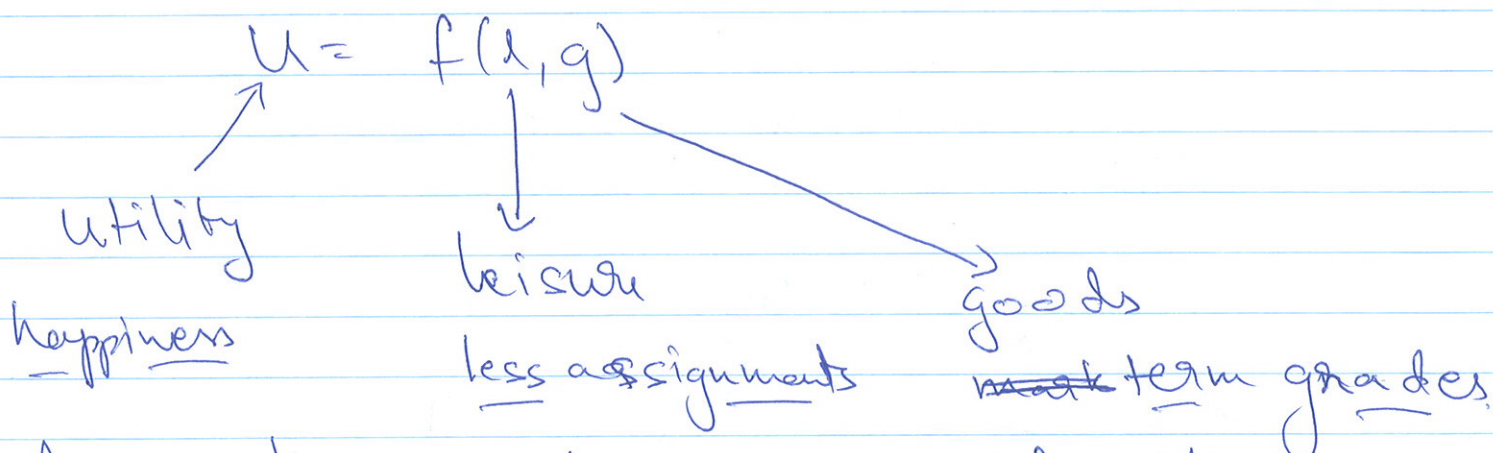 U = f(l, g)
utility leisure goods
happiness less assignments term grades